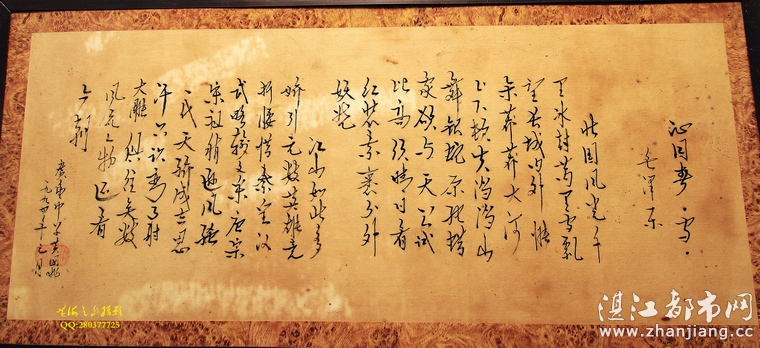 沁园春·雪·
毛泽东
北国风光千
里冰封万里雪飘
望长城内外惟
余莽莽大河
上下顿失滔滔山
舞银蛇原驰蜡
象欲与天公试
比高须晴日看
红装素裹分外
妖娆
江山如此多
娇引无数英雄竞
折腰惜秦皇汉
武略输文采唐宗
宋祖稍逊风骚
一代天骄成吉思
汗只识弯弓射
大雕俱往矣数
风流人物还看
今朝
一九九四年元月
QQ:280377725
湛江都市网
www.zhanjiang.cc